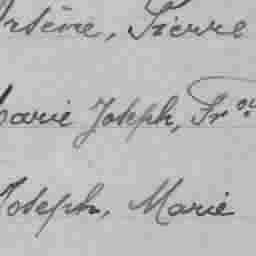 Arsène, Pierre
Marie Joseph, Fr.ois
Joseph, Marie